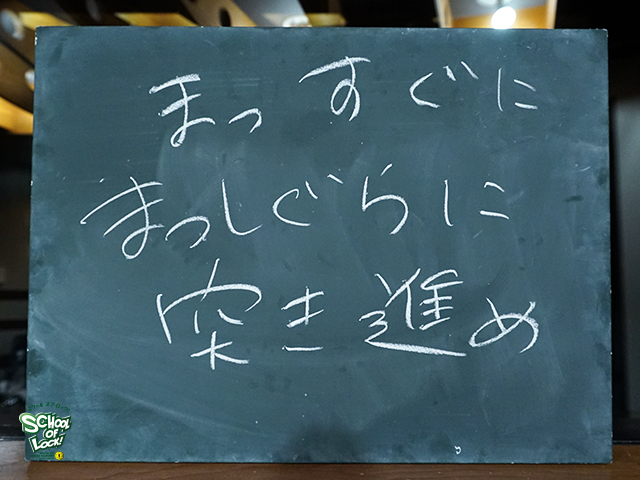 まっすぐに
まっしぐらに
突き進め
SCHOOL
OF
LOCK!